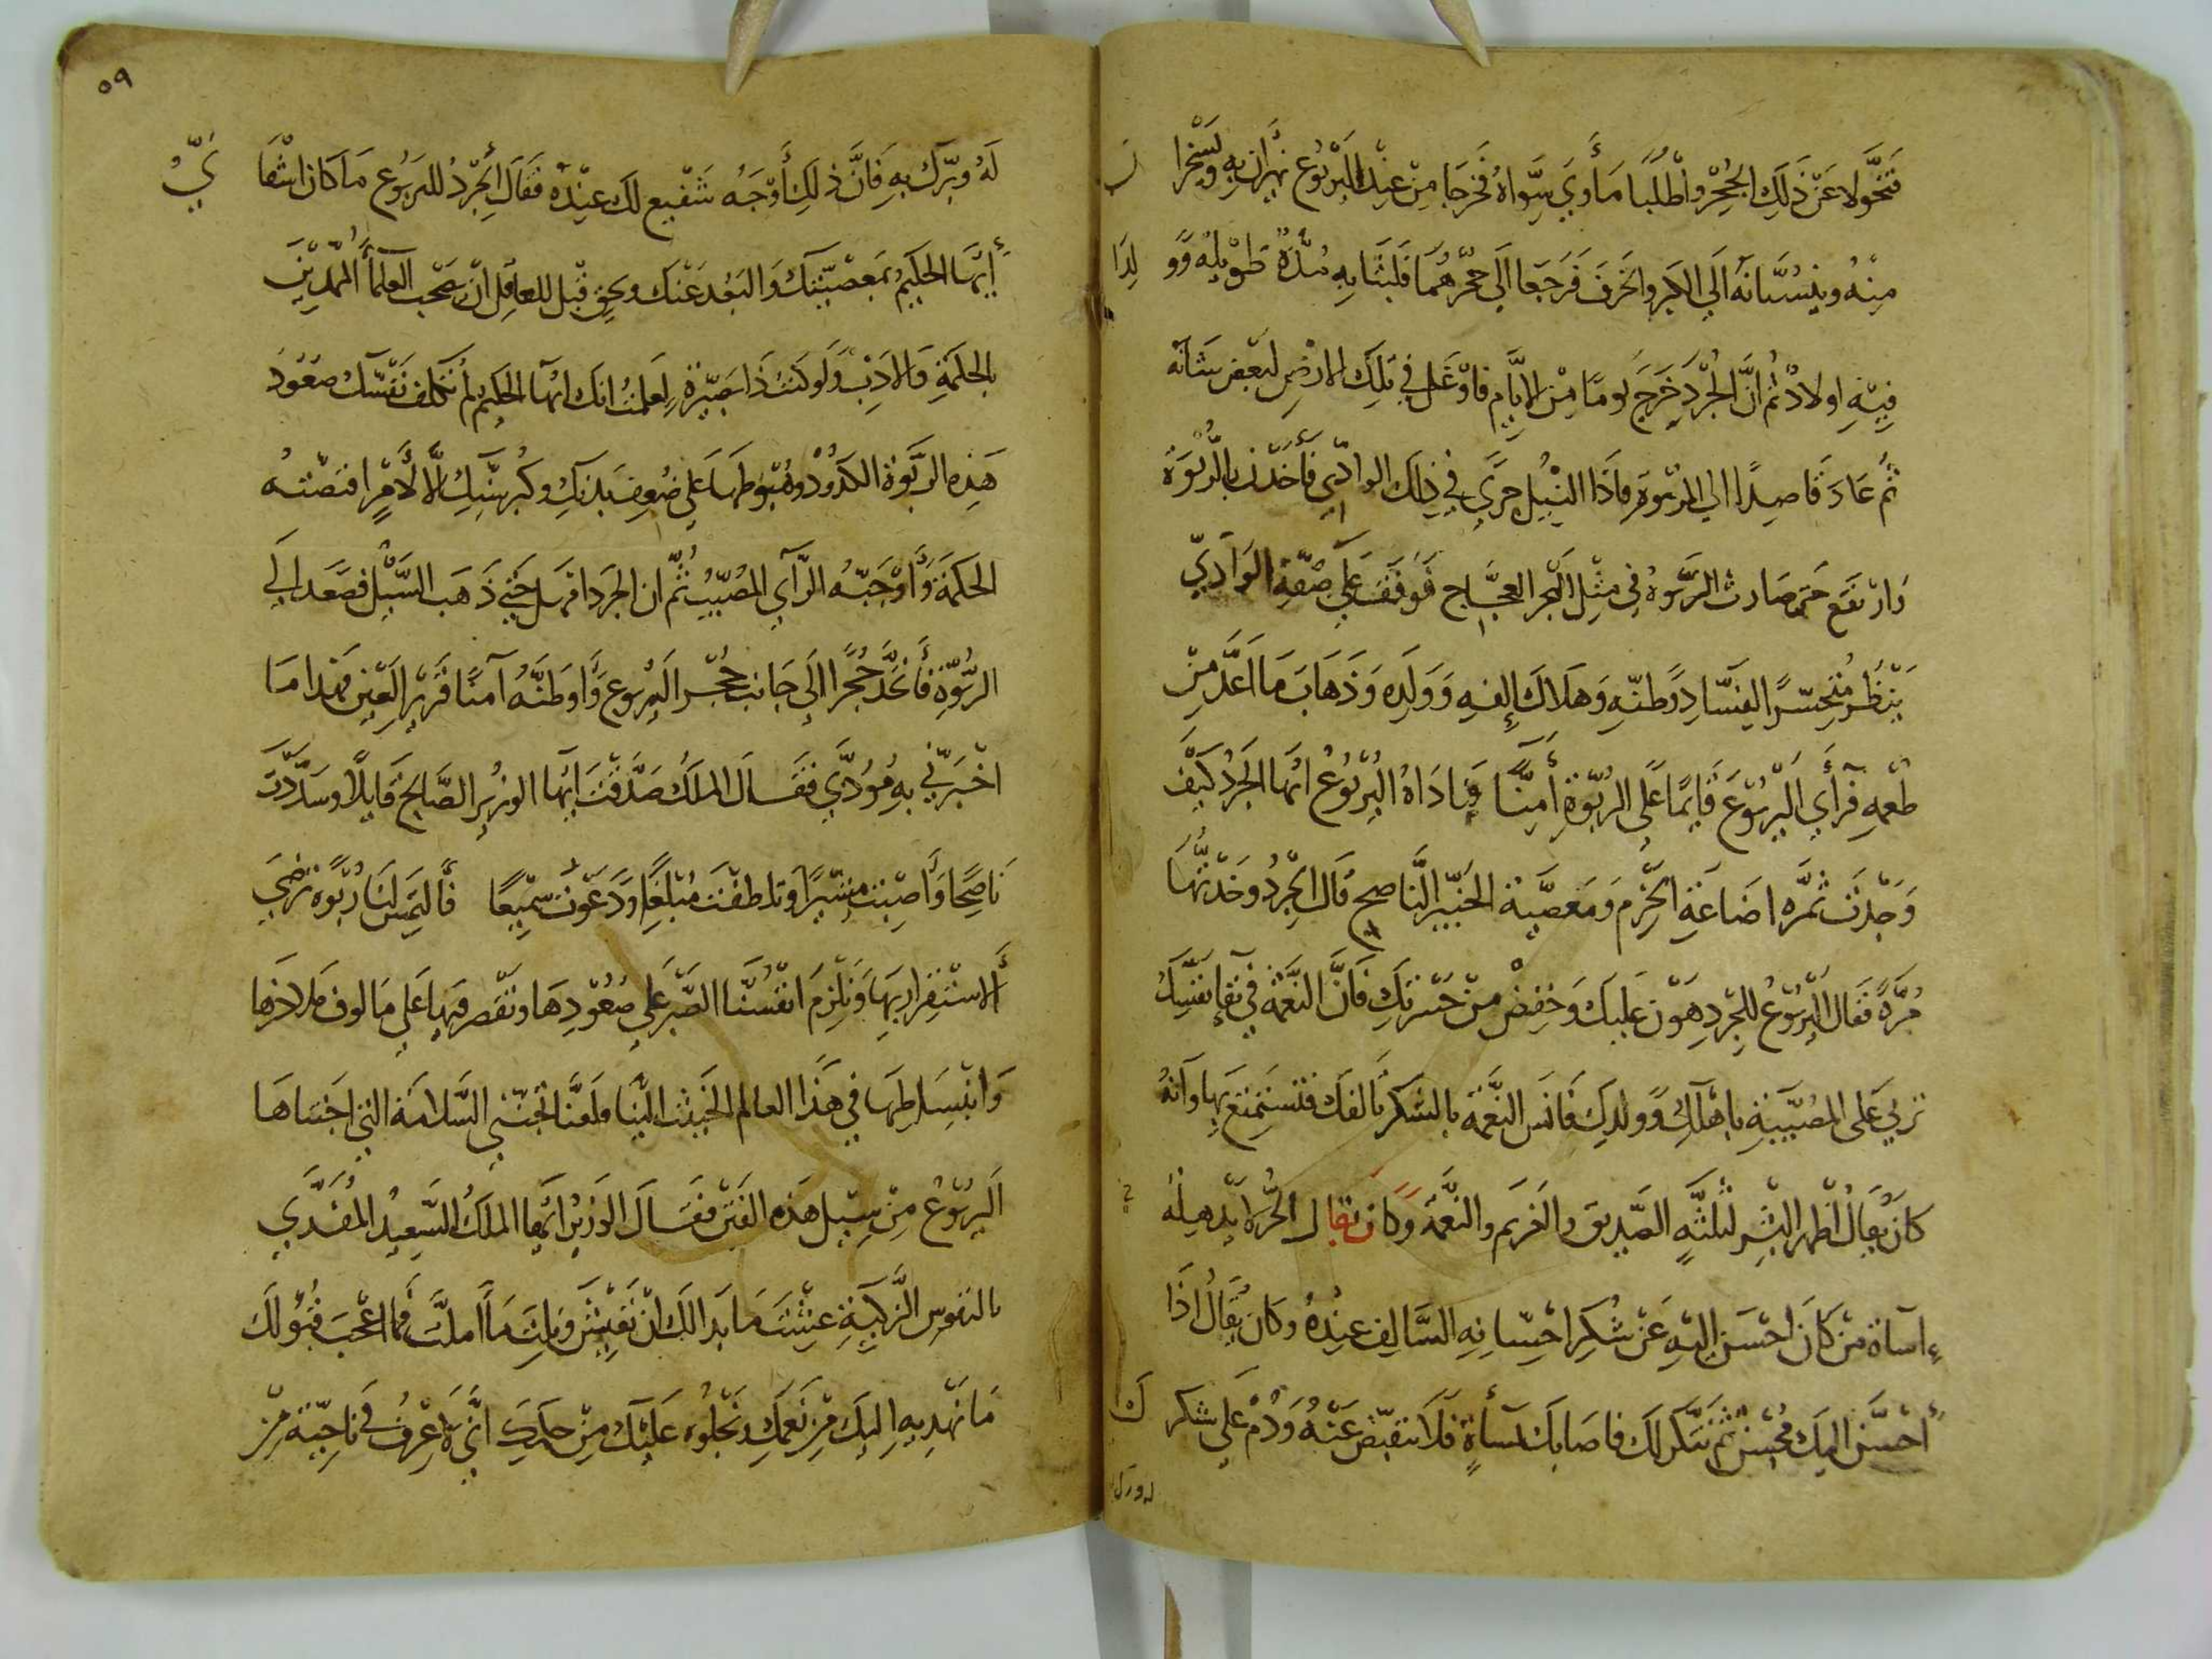 فتحولا عن ذلك الجحر واطلبا مأوي سواه فخرجا من عند اليربوع يهزان به ويسخرا
ن
منه وينسبانه الي الكبر والخرف فرجعا الي جحرهما فلبثا به مدة طويله وو
لدا
فيه اولاد ثم ان الجرد خرج يوما من الايام فاوغل في تلك الارض لبعض شانه
ثم عاد قاصدا الي الربوة فاذا السيل جري في ذلك الوادي فأخذت بالربوة
وارتفع حتي صارت الربوة في مثل البحر العجاج فوقف علي ضفة الوادي
ينظر متحسرا الفساد وطنه وهلاك إلفه وولده وذهاب ما اعد من
طعمه فرأي اليربوع قايما علي الربوة أمنا فناداه اليربوع ايها الجرد كيف
وجدت ثمره اضاعة الحزم ومعصية الخبير الناصح قال الجرد وجدتها
مرة فقال اليربوع للجرد هون عليك وخفض من حسرتك فان النعمة في بقا نفسك
تربي علي المصيبة باهلك وولدك فانس النعمة بالشكر تالفك فتستمتع بها وانه
كان يقال اظهر البشر لثلثه الصديق والغريم والنعمة وكان يقال الحر لا يذهله
إساة من كان احسن اليه عن شكر احسانه السالف عنده وكان يقال اذا
أحسن اليك محسن ثم تنكر لك فاصابك بمسأة فلا تنقبض عنه ودم علي شكر
ك
له وبرك
٥٩
له وبرك به فان ذلك أوجه شفيع لك عنده فقال الجرد لليربوع ما كان اشقا
ني
أيها الحكيم بمعصيتك والبعد عنك وبحق قيل للعاقل ان يصحب العلمأ المهديين
بالحكمة والادب ولو كنت ذا بصيرة لعلمت انك ايها الحكيم لم تكلف نفسك صعود
هذه الربوة الكدود وهبوطها علي ضعف بدنك وكبر سنك الا لأمر اقتضته
الحكمة وأوجبه الرأي المصيب ثم ان الجرد امهل حتي ذهب السيل فصعد الي
الربوة فأتخذ جحرا الي جانب جحر اليربوع وأوطنه آمنا قرير العين فهذا ما
اخبرني به مؤدبي فقال الملك صدقت ايها الوزير الصالح قايلا وسددت
ناصحا وأصبت مشيرا وتلطفت مبلغا ودعوت سميعا فالتمس لنا ربوة نرضي
ألاستقرار بها ونلزم انفسنا الصبر علي صعودها ونقصر فيها علي مالوف ملاذها
وانبساطها في هذا العالم الخبيث الينا فلعنا نجتني السلامة التي اجتناها
اليربوع من سيل هذه الفتن فقال الوزير ايها الملك السعيد المفدي
بالنفوس الزكية عشت ما بدا لك ان تعيش وبلغت ما أملت فما اعجب قبولك
ما نهديه اليك من نعمك ونجلوه عليك من حليك اني لاعرف في ناحية من